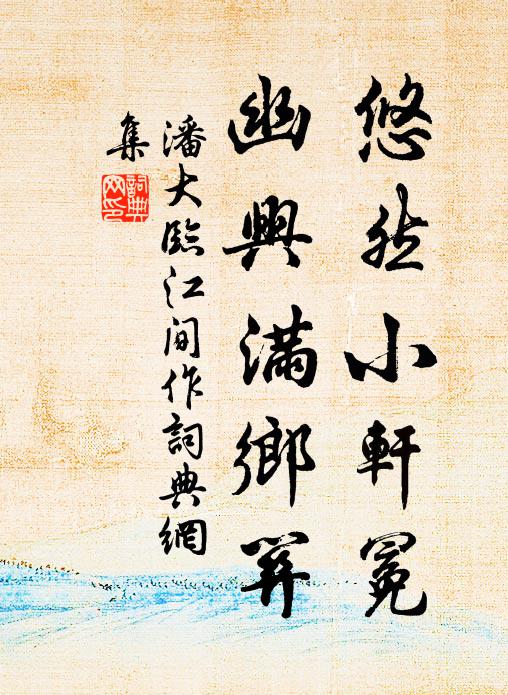 悠然小軒冕
幽興滿鄉關
潘大臨江間作詞典網
集
詞典
网印